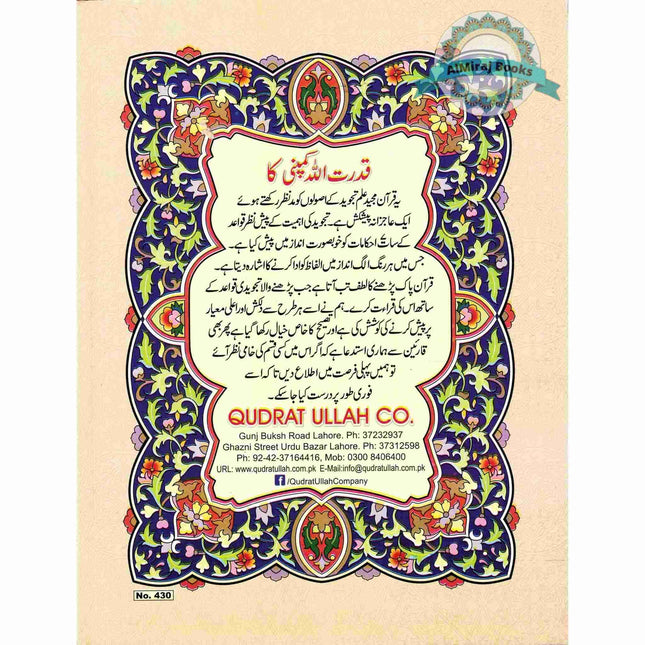 AlMiraj Books
قدرت اللہ کمپنی کا
یہ قرآن مجید علم تجوید کے اصولوں کو مدنظر رکھتے ہوئے
ایک عاجزانہ پیشکش ہے۔ تجوید کی اہمیت کے پیش نظر قواعد
کے سات احکامات کو خوبصورت انداز میں پیش کیا ہے۔
جس میں ہر رنگ الگ انداز میں الفاظ کو ادا کرنے کا اشارہ دیتا ہے۔
قرآن پاک پڑھنے کا لطف تب آتا ہے جب پڑھنے والا تجویدی قواعد کے
ساتھ اس کی قراءت کرے۔ ہم نے اسے ہر طرح سے دلکش اور اعلیٰ معیار
پر پیش کرنے کی کوشش کی ہے اور تصحیح کا خاص خیال رکھا گیا ہے پھر بھی
قارئین سے ہماری استدعا ہے کہ اگر اس میں کسی قسم کی خامی نظر آئے
تو ہمیں پہلی فرصت میں اطلاع دیں تاکہ اسے
فوری طور پر درست کیا جا سکے۔
QUDRAT ULLAH CO.
Gunj Buksh Road Lahore. Ph: 37232937
Ghazni Street Urdu Bazar Lahore. Ph: 37312598
Ph: 92-42-37164416, Mob: 0300 8406400
URL: www.qudratullah.com.pk E-Mail:info@qudratullah.com.pk
f /QudratUllahCompany
No. 430